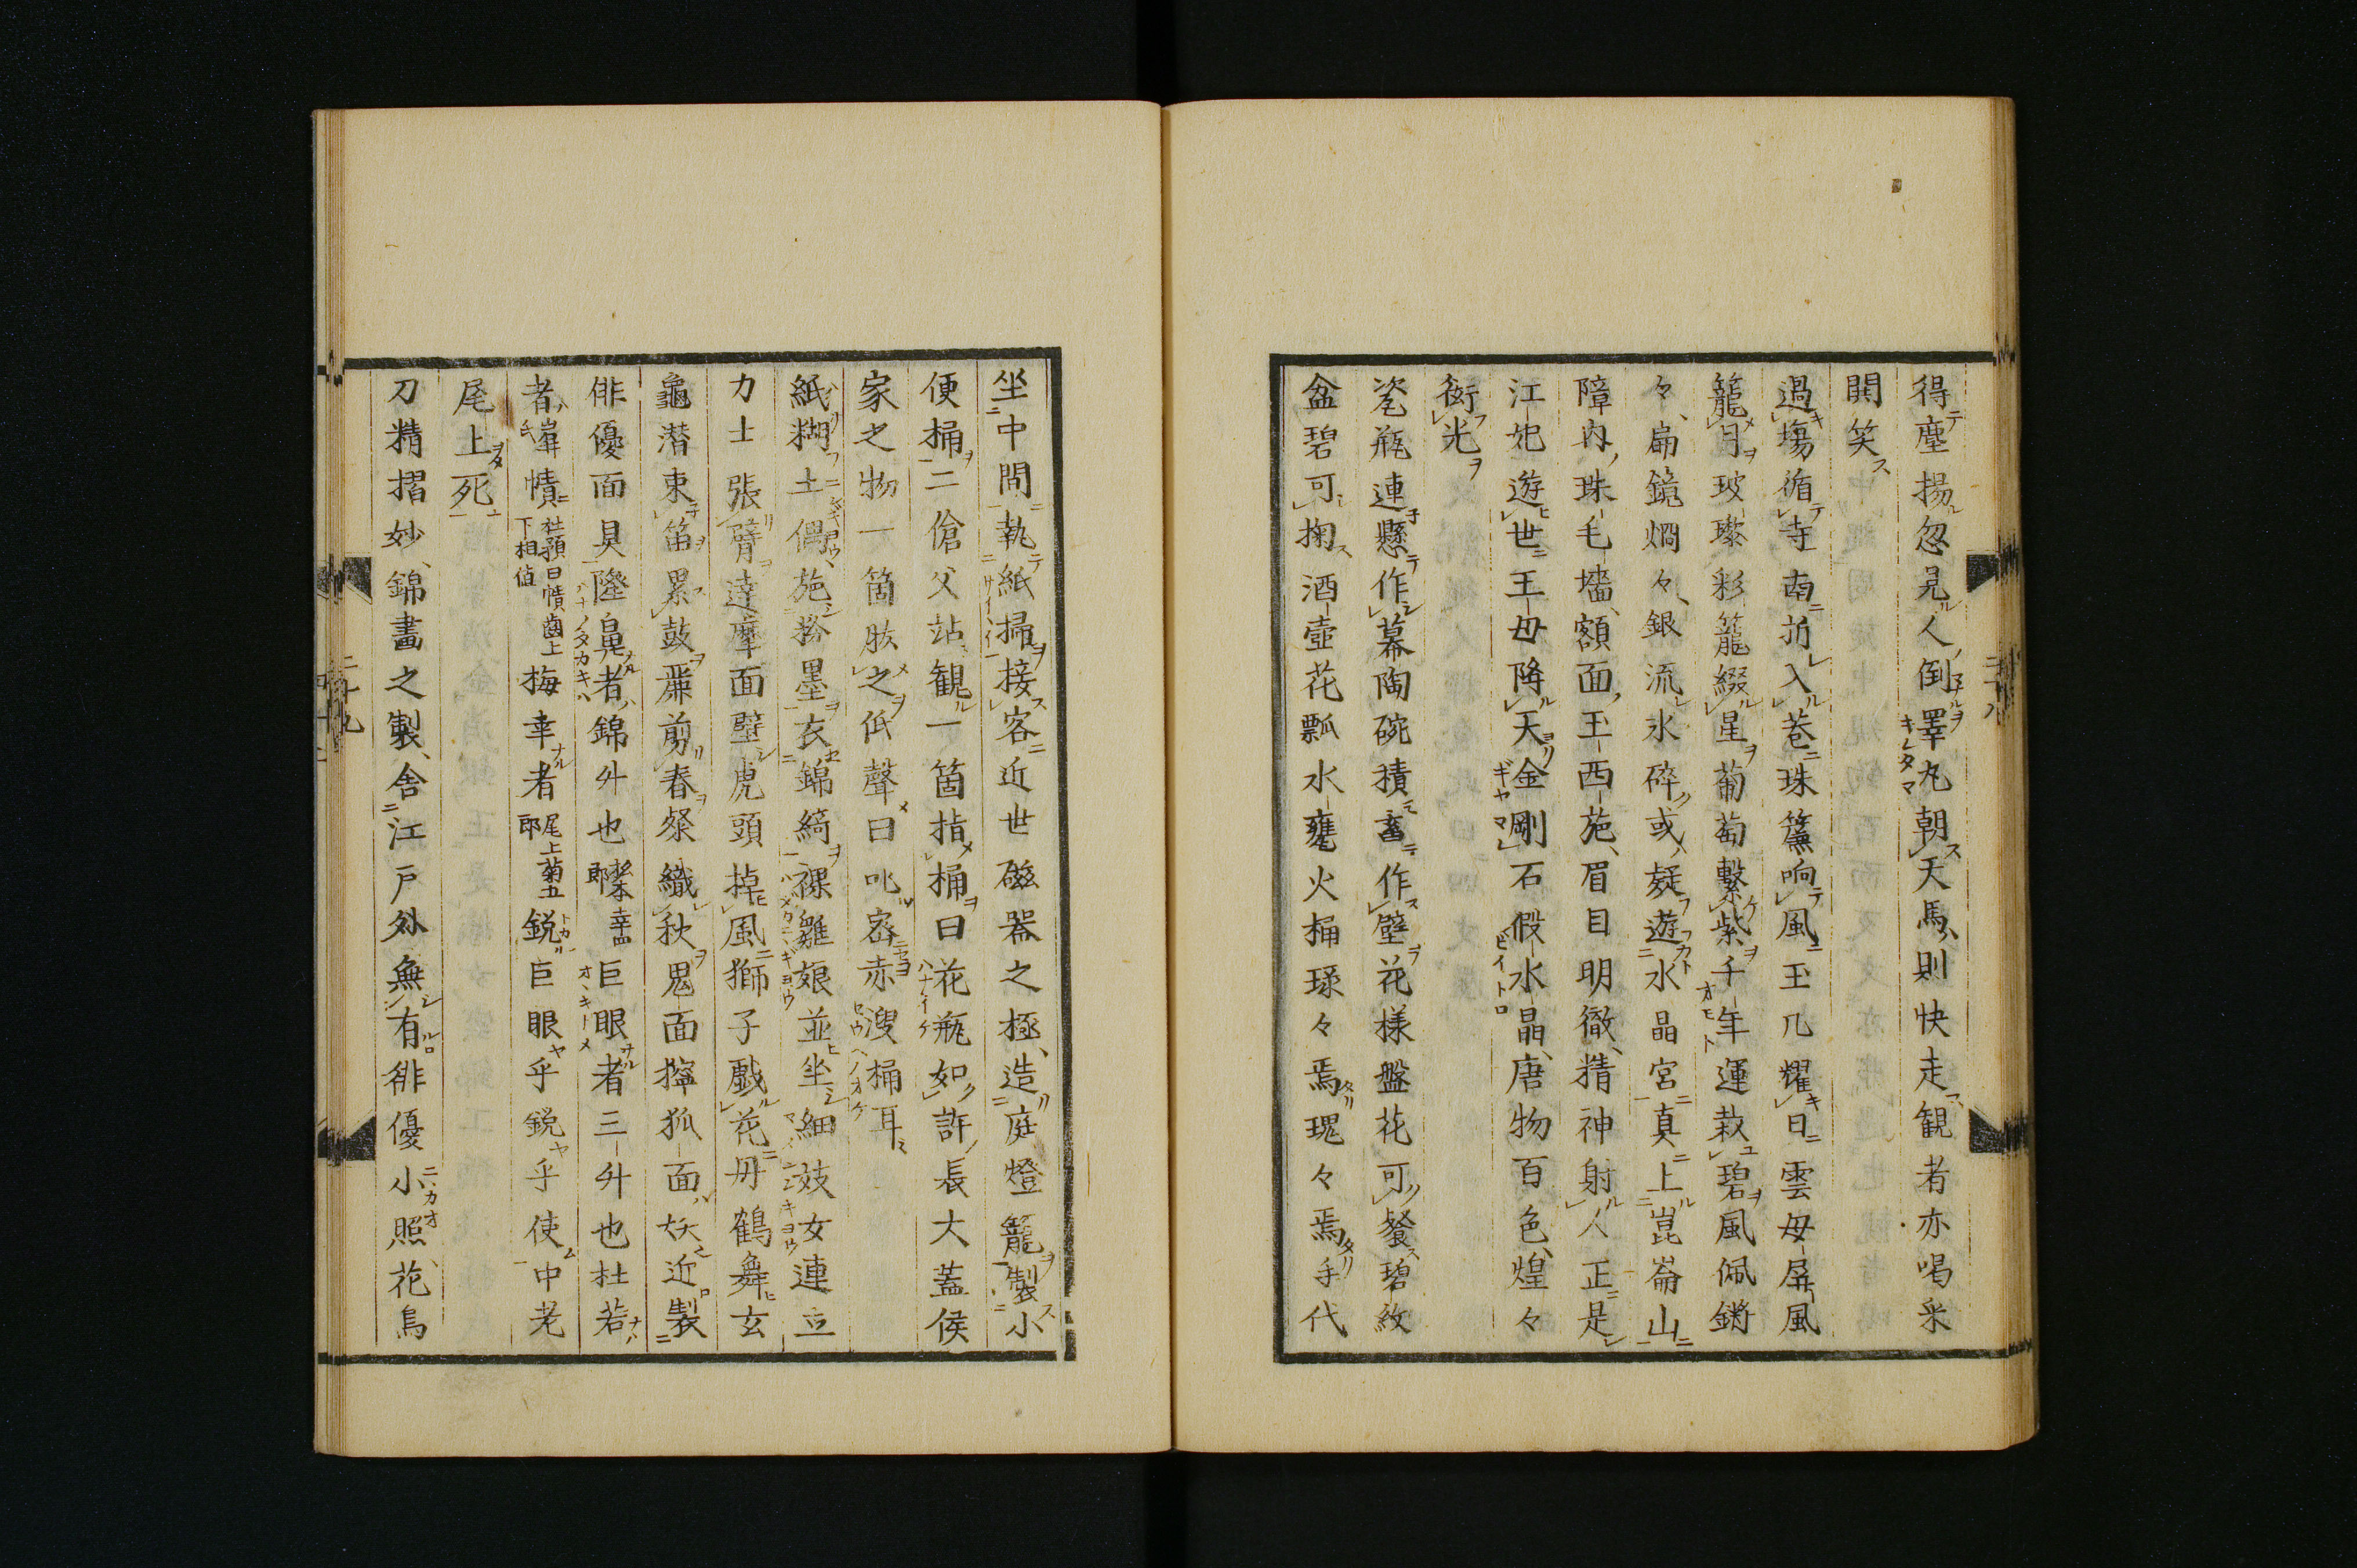 得塵揚忽見人倒睪丸朝天馬則快走観者亦喝采
閧笑
過塲循寺南折入巷珠簾响風玉几耀日雲母屏風
籠月玻瓈彩籠綴星葡萄繫紫千年運栽碧風佩鏘
々扁鏡燗々銀流水碎或疑遊水晶宮真上崑崙山
障内珠毛墻額面玉西施眉目明徹精神射人正是
江妃遊世王母降天金剛石假水晶唐物百色煌々
衒光
瓷瓶連懸作幕陶碗積畜作壁花様盤花可餐碧紋
盆碧可掬酒壺花瓢水甕火桶球々焉瑰々焉手代
坐中間執紙掃接客近世磁器之極造庭燈籠製小
便桶二傖父站観一箇指桶曰花瓶如許長大蓋侯
家之物一箇肱之低聲曰叱密赤溲桶耳
紙糊土偶施粉墨衣錦綺裸雛娘並坐細妓女連立
力士張臂達摩面壁虎頭掉風獅子戯花丹鶴舞玄
龜潜束笛累鼓簾剪春祭織秋鬼面獰狐面妖近製
俳優面具隆鼻者錦舛也松本幸四郎巨眼者三舛也杜若
者峯幘杜預曰幘齒上下相値梅幸者尾上菊五郎鋭巨眼乎鋭乎使中老
尾上死
刀精摺妙錦畫之製舎江戸外無有徘優小照花鳥
二十八
二十九